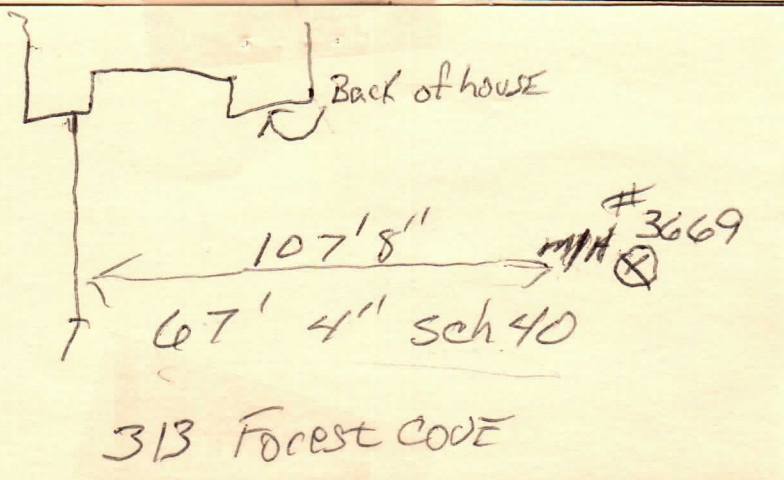 Back of house
#
3669
107'8" M/H
67' 4" Sch 40
313 Forest COVE